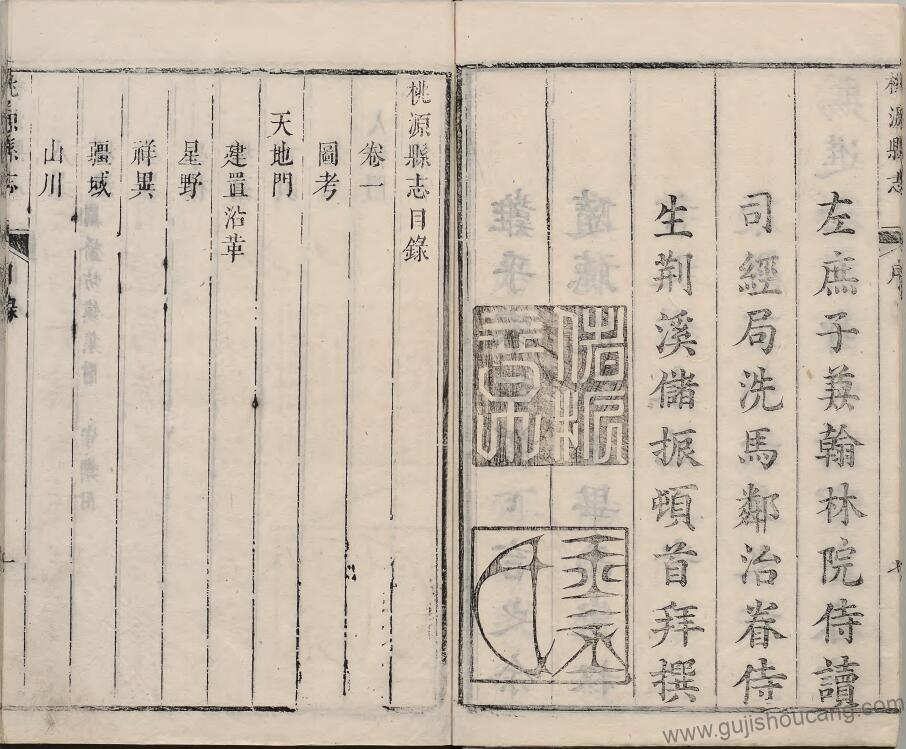 桃源縣志
序
七
左庶子兼翰林院侍讀
司經局洗馬鄰治眷侍
生荆溪儲振頓首拜撰
儲振
桃源縣志目錄
卷一
圖考
天地門
建置沿革
星野
祥異
疆域
山川
桃源縣志
目錄
一
www.gujishoucang.com